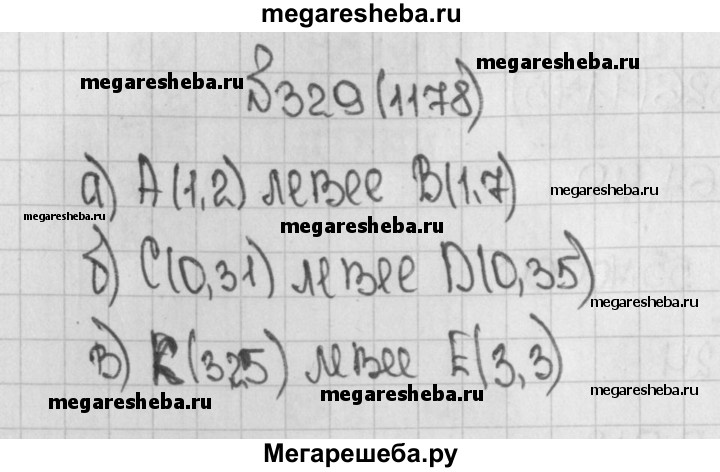 megaresheba.ru
megaresheba.ru
megaresheba.ru
№329(1178)
а) A(1,2) левее B(1,7)
megaresheba.ru
megaresheba.ru
megaresheba.ru
б) C(0,31) левее D(0,35)
megaresheba.ru
в) K(3,25) левее E(3,3)
megaresheba.ru
megaresheba.ru
megaresheba.ru
Мегарешеба.ру